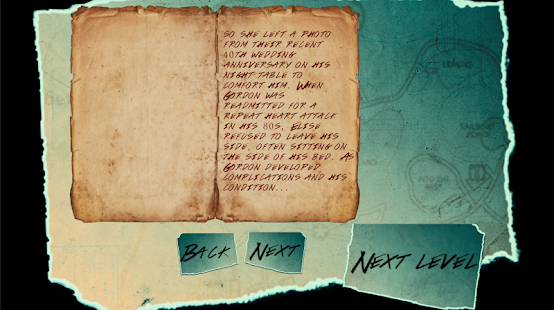 So she left a photo
from their recent
40th wedding
anniversary on his
night table to
comfort him. When
Gordon was
readmitted for a
repeat heart attack
in his 80s, Elise
refused to leave his
side, often sitting on
the side of his bed. As
Gordon developed
complications and his
condition...
Back
Next
Next level